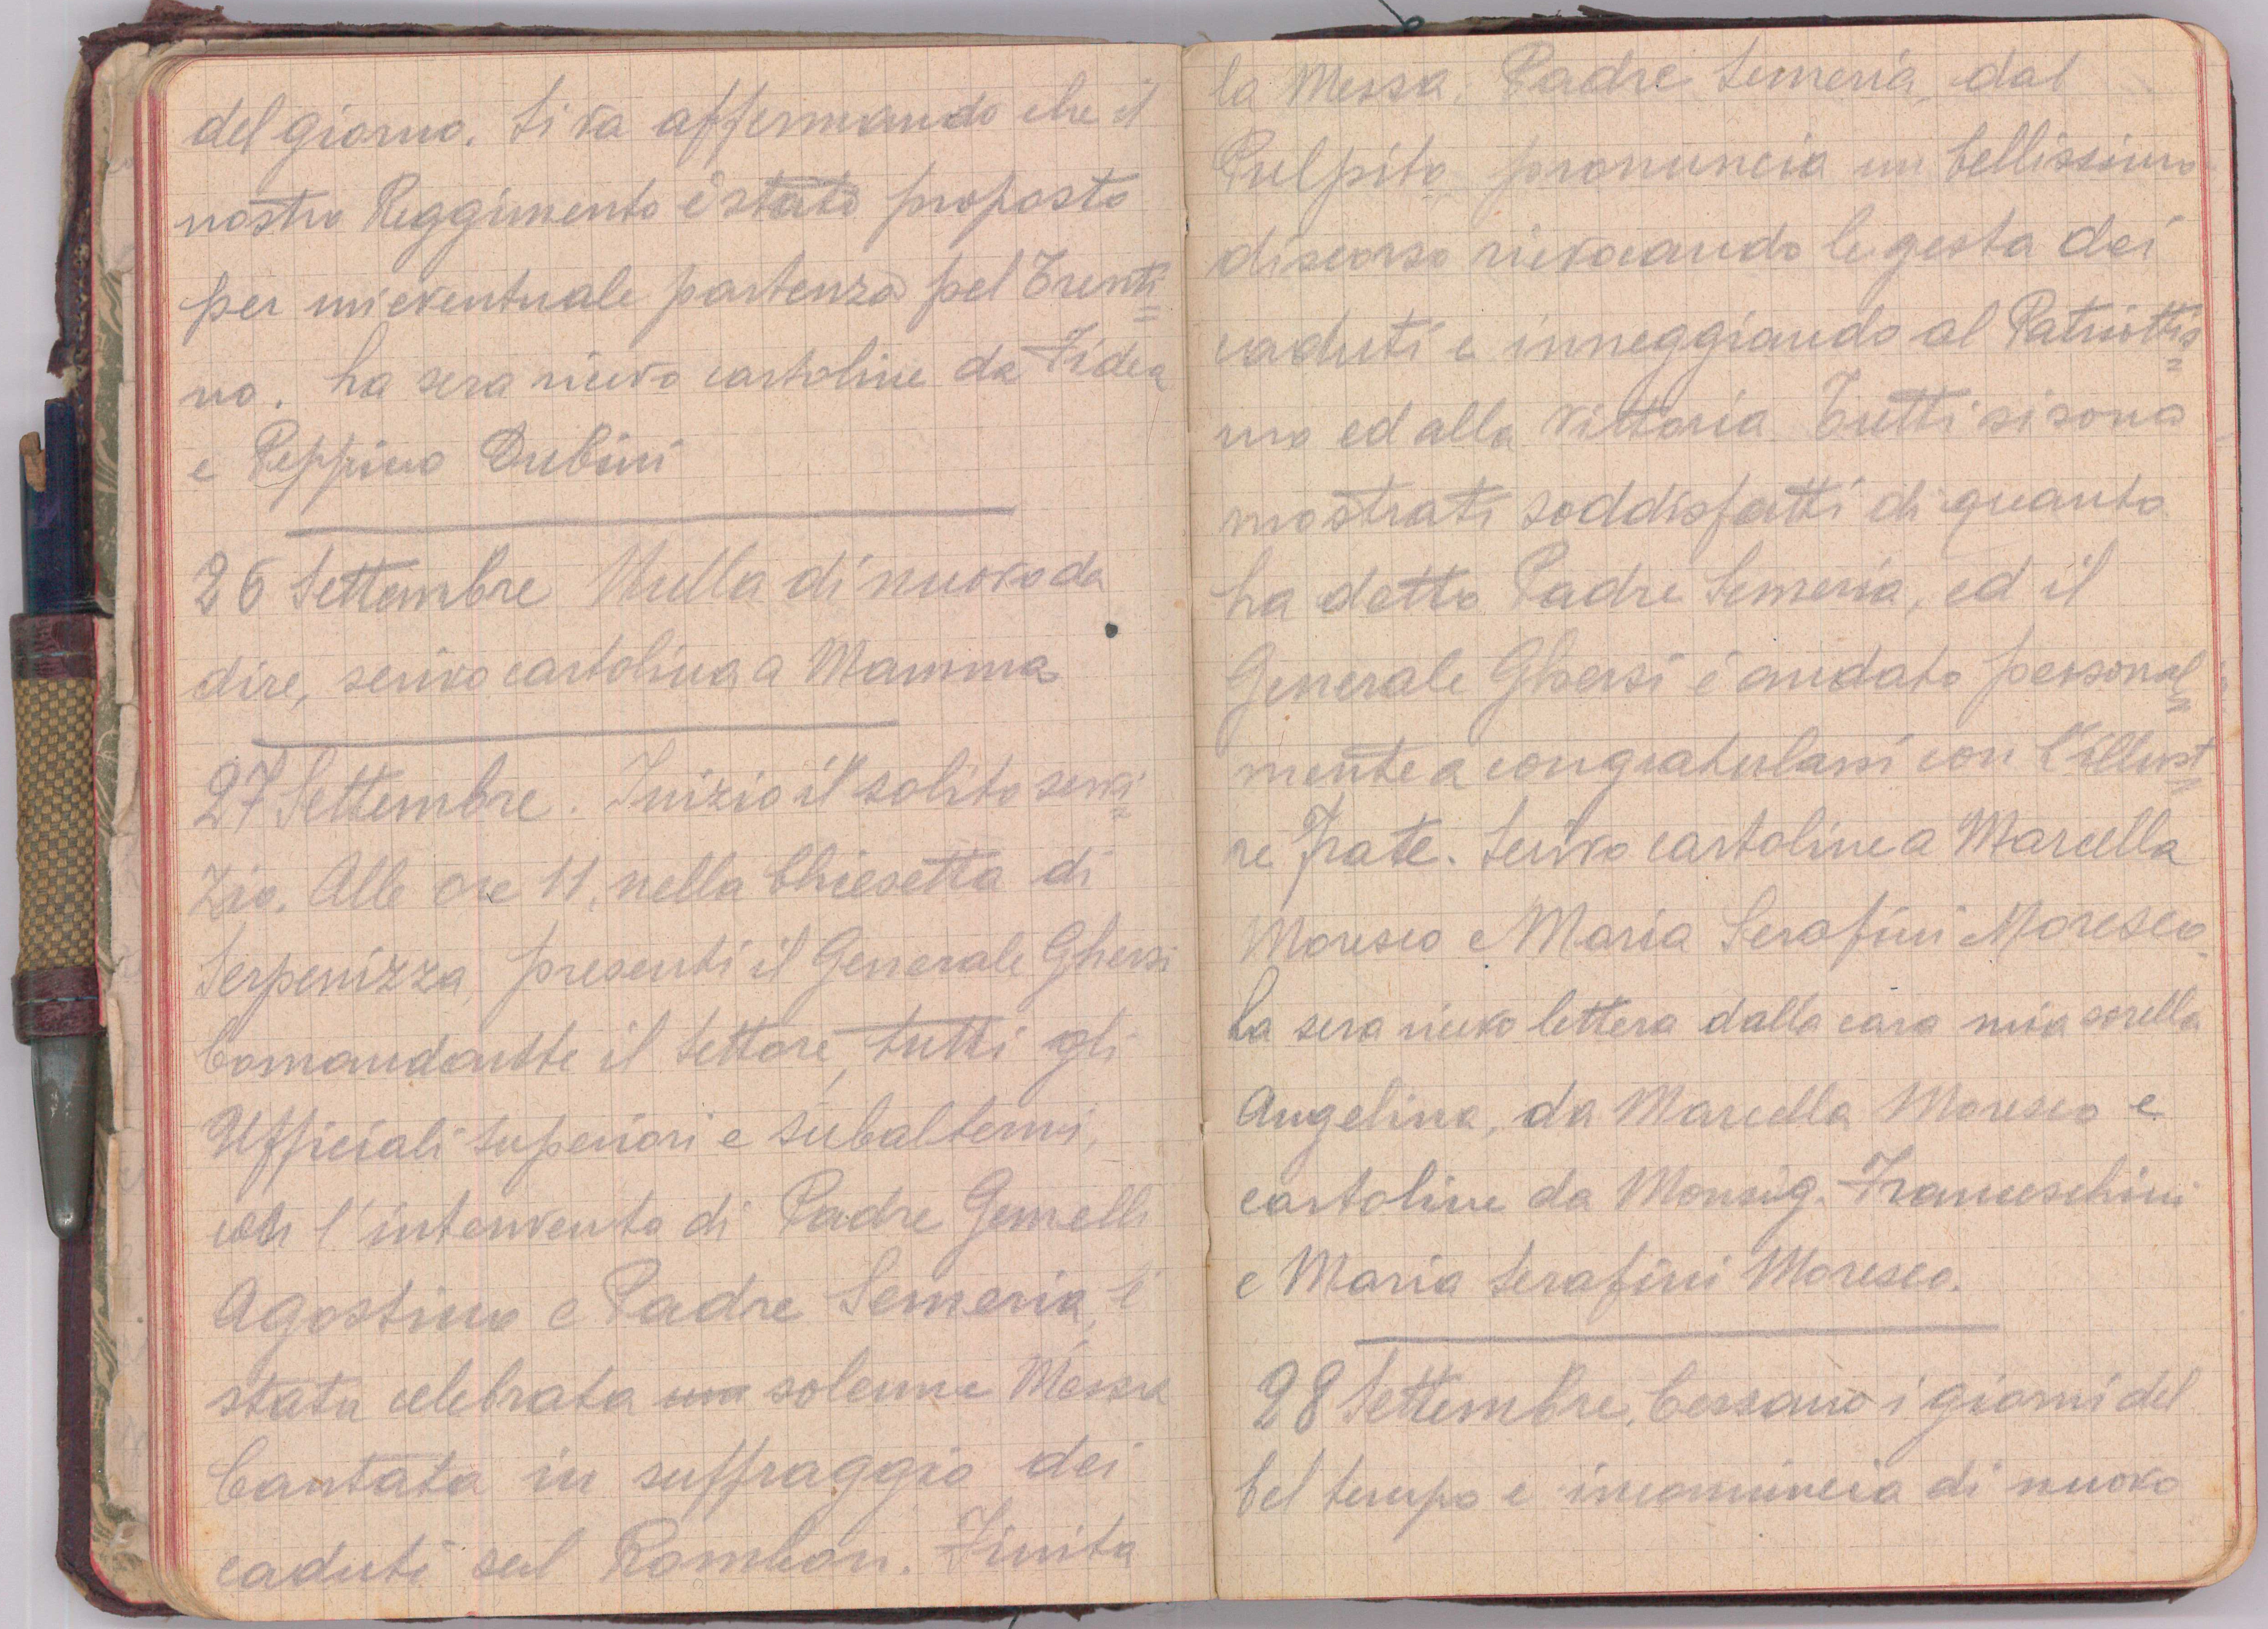 del giorno. Si va affermando che il
nostro Reggimento è stato proposto
per un'eventuale partenza pel Trenti=
no. La sera ricevo cartoline da Fidea
e Peppino Dubini
26 Settembre Nulla di nuovo da
dire, scrivo cartolina a Mamma
27 Settembre. Inizio il solito servi=
zio. Alle ore 11, nella Chiesetta di
Serpenizza, presenti il Generale Ghersi
Comandante il Settore, tutti gli
Ufficiali superiori e subalterni,
con l'intervento di Padre Gemelli
Agostino e Padre Semeria, è
stata celebrata una solenne Messa
Cantata in suffraggio dei
caduti sul Rombon. Finita
la Messa, Padre Semeria, dal
Pulpito, pronuncia un bellissimo
discorso rievocando le gesta dei
caduti e inneggiando al Patriottis=
mo ed alla Vittoria. Tutti si sono
mostrati soddisfatti di quanto
ha detto Padre Semeria, ed il
Generale Ghersi è andato personal=
mente a congratularsi con l'illust=
re Frate. Scrivo cartoline a Marcella
Moresco e Maria Serafini Moresco.
La sera ricevo lettera dalla cara mia sorella
Angelina, da Marcella Moresco e
cartoline da Monsig. Franceschini
e Maria Serafini Moresco.
28 Settembre. Cessano i giorni del
bel tempo e incomincia di nuovo